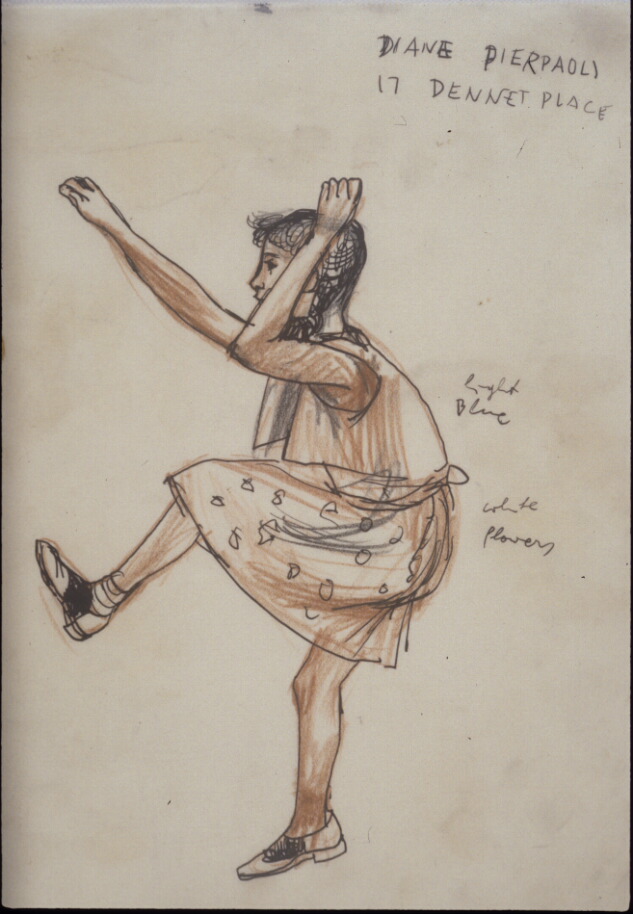 DIANE PIERPAOLI
17 DENNET PLACE
light
Blue
white
flowers